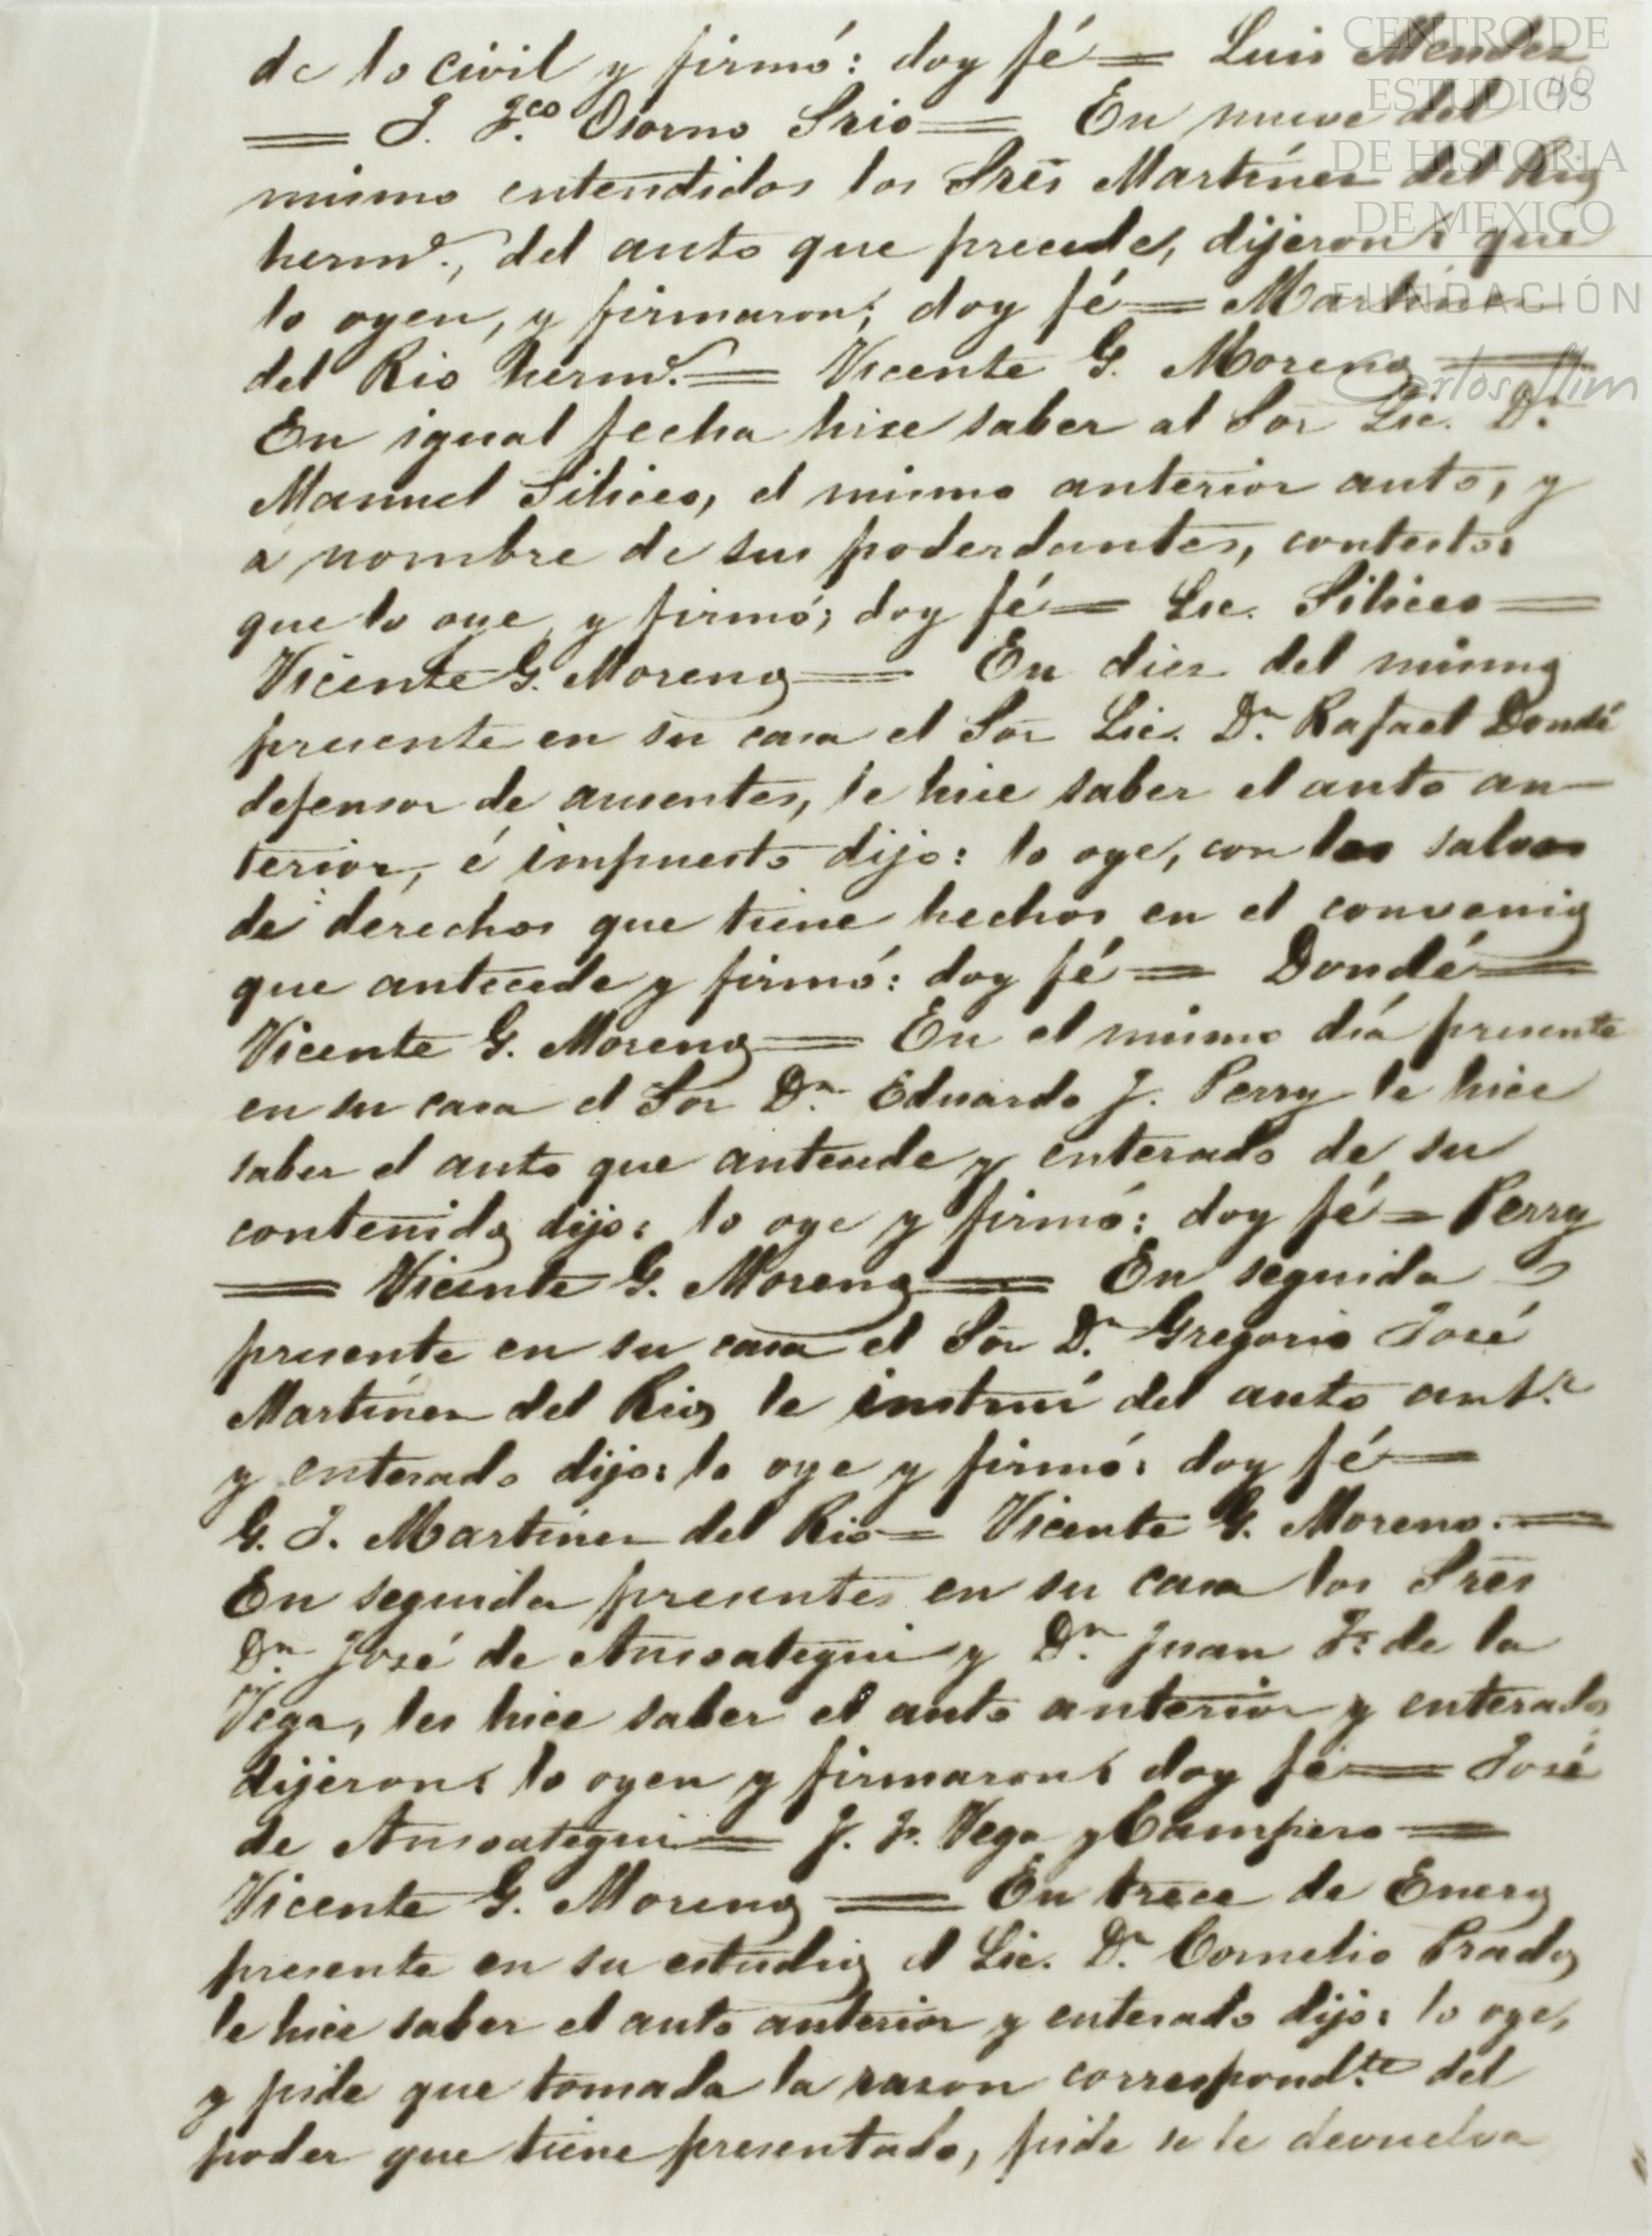 de lo civil y firmó: doy fé = Luis Mendez
= J. Fco. Osorno Srio = En nueve del
mismo entendidos los Sres Martínez del Rio
hermo., del auto que precede, dijeron: que
lo oyen, y firmaron; doy fé = Martinez
del Rio hermo. = Vicente G. Moreno =
En igual fecha hice saber al Sor Lic. Dn.
Manuel Siliceo, el mismo anterior auto, y
a nombre de sus poderdantes, contestó:
que lo oye, y firmó; doy fé = Lic. Siliceo =
Vicente G. Moreno = En diez del mismo
presente en su casa el Sor Lic. Dn. Rafael Dondé
defensor de ausentes, le hice saber el auto an-
terior, é impuesto dijo: lo oye, con las salvas
de derechos que tiene hechos en el convenio
que antecede y firmó: doy fé = Dondé =
Vicente G. Moreno = En el mismo día presente
en su casa el Sor Dn. Eduardo J. Perry le hice
saber el auto que antecede y enterado de su
contenido dijo: lo oye y firmó: doy fé = Perry
= Vicente G. Moreno = En seguida
presente en su casa el Sor Dn. Gregorio José
Martínez del Rio, le instruí del auto antr.
y enterado dijo: lo oye y firmó: doy fé =
G. J. Martinez del Rio = Vicente G. Moreno. =
En seguida presentes en su casa los Sres
Dn. José de Ansoategui y Dn. Juan F. de la
Vega, les hice saber el auto anterior y enterados
dijeron: lo oyen y firmaron: doy fé = José
de Ansoategui = J. F. Vega y Campero =
Vicente G. Moreno = En trece de Enero
presente en su estudio el Lic. Dn. Cornelio Prado
le hice saber el auto anterior y enterado dijo: lo oye,
y pide que tomada la razon correspondte. del
poder que tiene presentado, pide se le devuelva
CENTRO DE
ESTUDIOS
DE HISTORIA
DE MEXICO
FUNDACIÓN
Carlos Slim